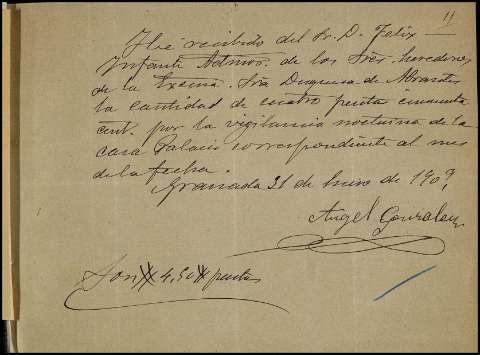 11
He recibido del Sr. D. Felix
Infante Admor. de los Sres. herederos
de la Excma. Sra Duquesa de Abrantes
la cantidad de cuatro pesetas cincuenta
cent. por la vigilancia nocturna de la
casa Palacio correspondiente al mes
de la fecha.
Granada 31 de Enero de 1909
Angel Gonzalez
Son 4,50 pesetas